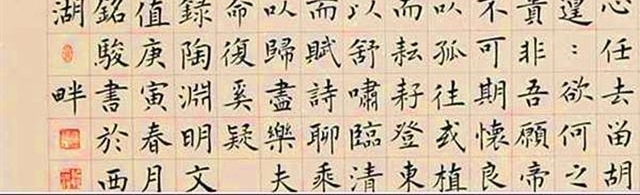 心任去留胡
遑：欲何之
貴非吾願帝
不可期懷良
以孤往或植
而耘耔登東
以舒嘯臨清
而賦詩聊乘
以歸盡樂夫
命復奚疑
錄陶淵明文
值庚寅春月
銘駿書於西
湖畔